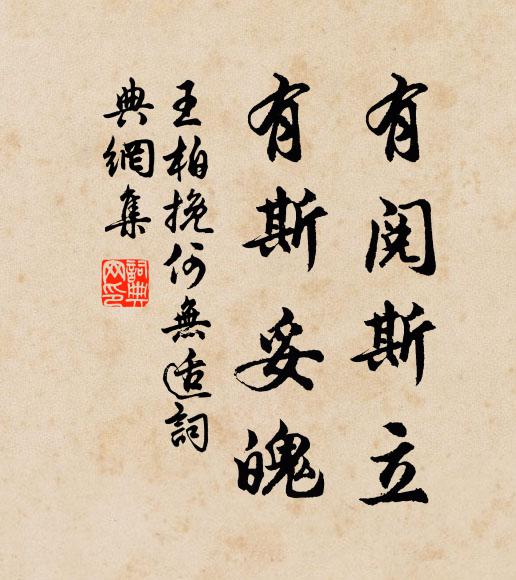 有閱斯立
有斯妥魄
王柏挽何無适詞
典網集
詞典
网印